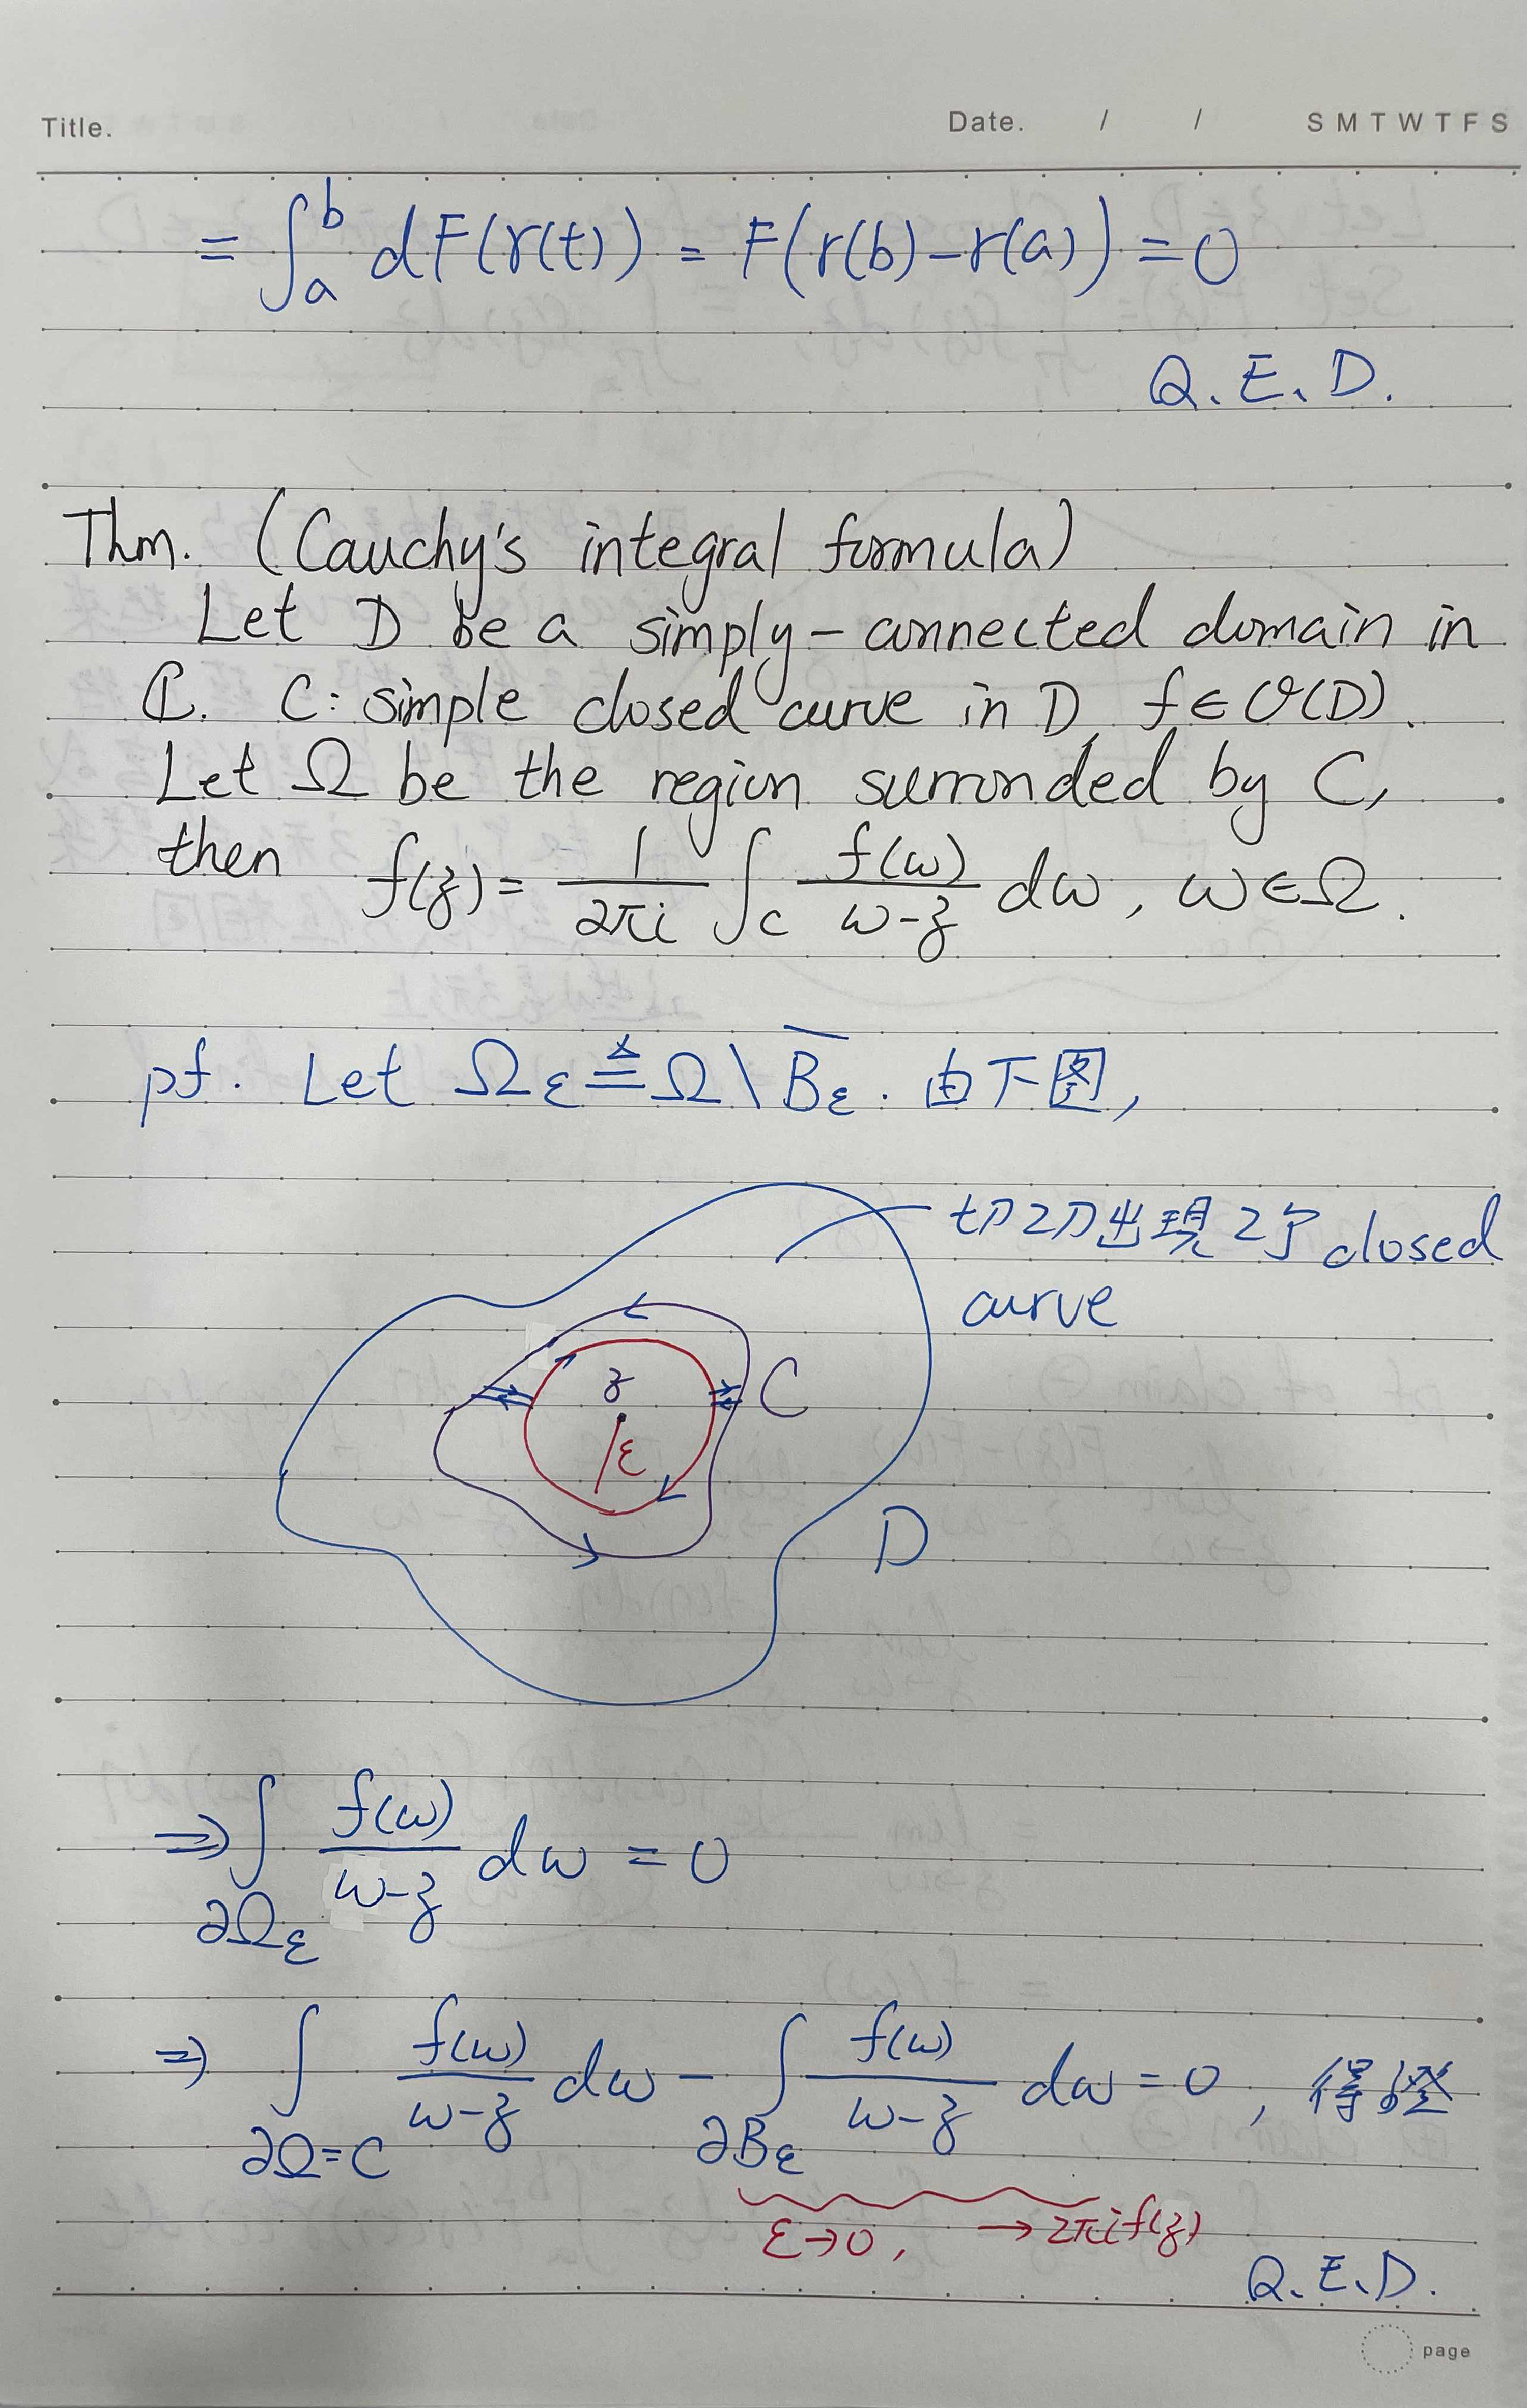 Title. Date. / / S M T W T F S
= ∫_a^b dF(r(t)) = F(r(b)-r(a)) = 0
Q.E.D.
Thm. (Cauchy's integral formula)
Let D be a simply-connected domain in
ℂ. C: simple closed curve in D, f∈O(D).
Let Ω be the region surronded by C,
then f(z) = 1/2πi ∫_C f(w)/w-z dw, w∈Ω.
pf. Let Ω_ε ≜ Ω \ \overline{B_ε}. 由下图,
切2刀出現2个closed
curve
z
C
ε
D
⇒ ∫_{∂Ω_ε} f(w)/w-z dw = 0
⇒ ∫_{∂Ω=C} f(w)/w-z dw - ∫_{∂B_ε} f(w)/w-z dw = 0, 得證
ε→0, → 2πi f(z)
Q.E.D.
page